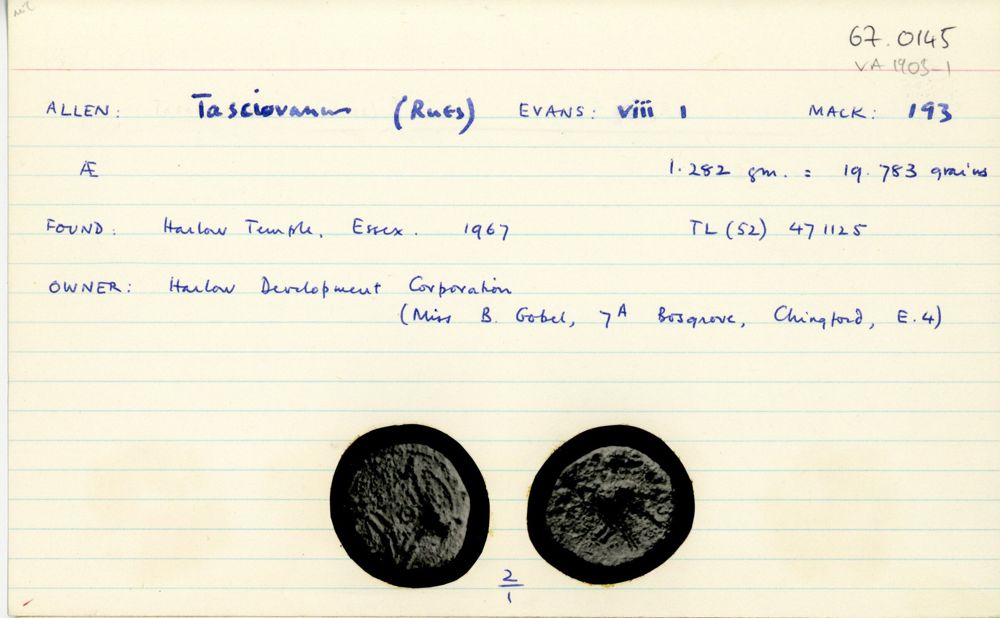 nil
67.0145
VA 1903-1
ALLEN: Tasciovanus (RUES) EVANS: viii 1 MACK: 193
Æ 1.282 gm. = 19.783 grains
FOUND: Harlow Temple, Essex. 1967 TL (52) 471125
OWNER: Harlow Development Corporation
(Miss B. Gobel, 7A Bosgrove, Chingford, E.4)
2
1